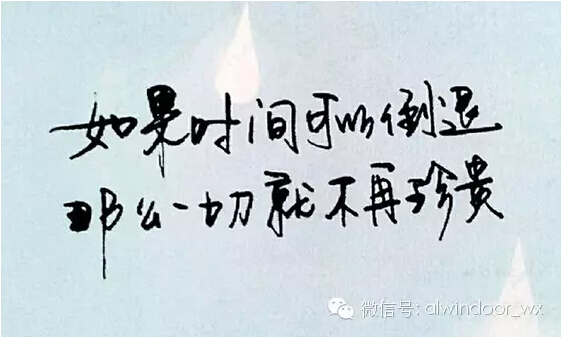 如果时间可以倒退
那么一切就不再珍贵
微信号: alwindoor_wx